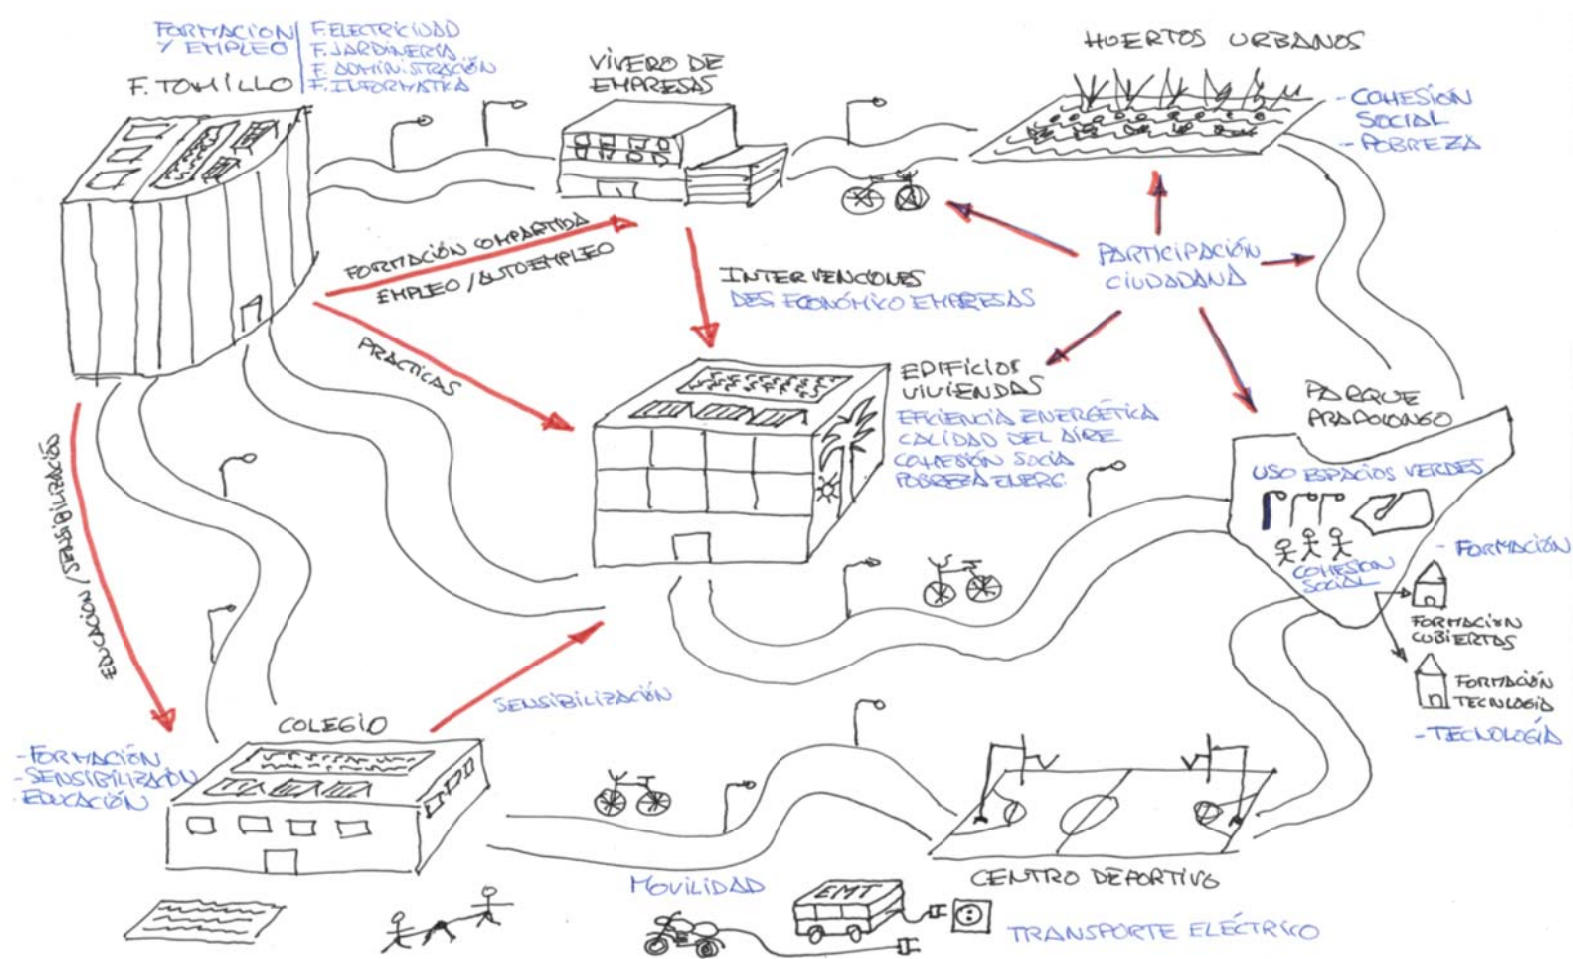 FORMACION
Y EMPLEO
F. ELECTRICIDAD
F. JARDINERÍA
F. ADMINISTRACIÓN
F. INFORMATKA
F. TOMILLO
VIVERO DE
EMPRESAS
HUERTOS URBANOS
- COHESIÓN
SOCIAL
- POBREZA
FORMACIÓN COMPARTIDA
EMPLEO / AUTOEMPLEO
INTERVENCIONES
DES. ECONÓMICO EMPRESAS
PARTICIPACIÓN
CIUDADANA
PRACTICAS
EDIFICIOS
VIVIENDAS
EFICIENCIA ENERGÉTICA
CALIDAD DEL AIRE
COHESIÓN SOCIA
POBREZA ENERG.
PARQUE
PRADOLONGO
USO ESPACIOS VERDES
COHESION
SOCIAL
- FORMACIÓN
FORMACIÓN
CUBIERTAS
FORMACIÓN
TECNLOGÍA
- TECNOLOGÍA
EDUCACIÓN / SENSIBILIZACIÓN
SENSIBILIZACIÓN
COLEGIO
- FORMACIÓN
- SENSIBILIZACIÓN
- EDUCACIÓN
MOVILIDAD
EMT
CENTRO DEPORTIVO
TRANSPORTE ELÉCTRICO